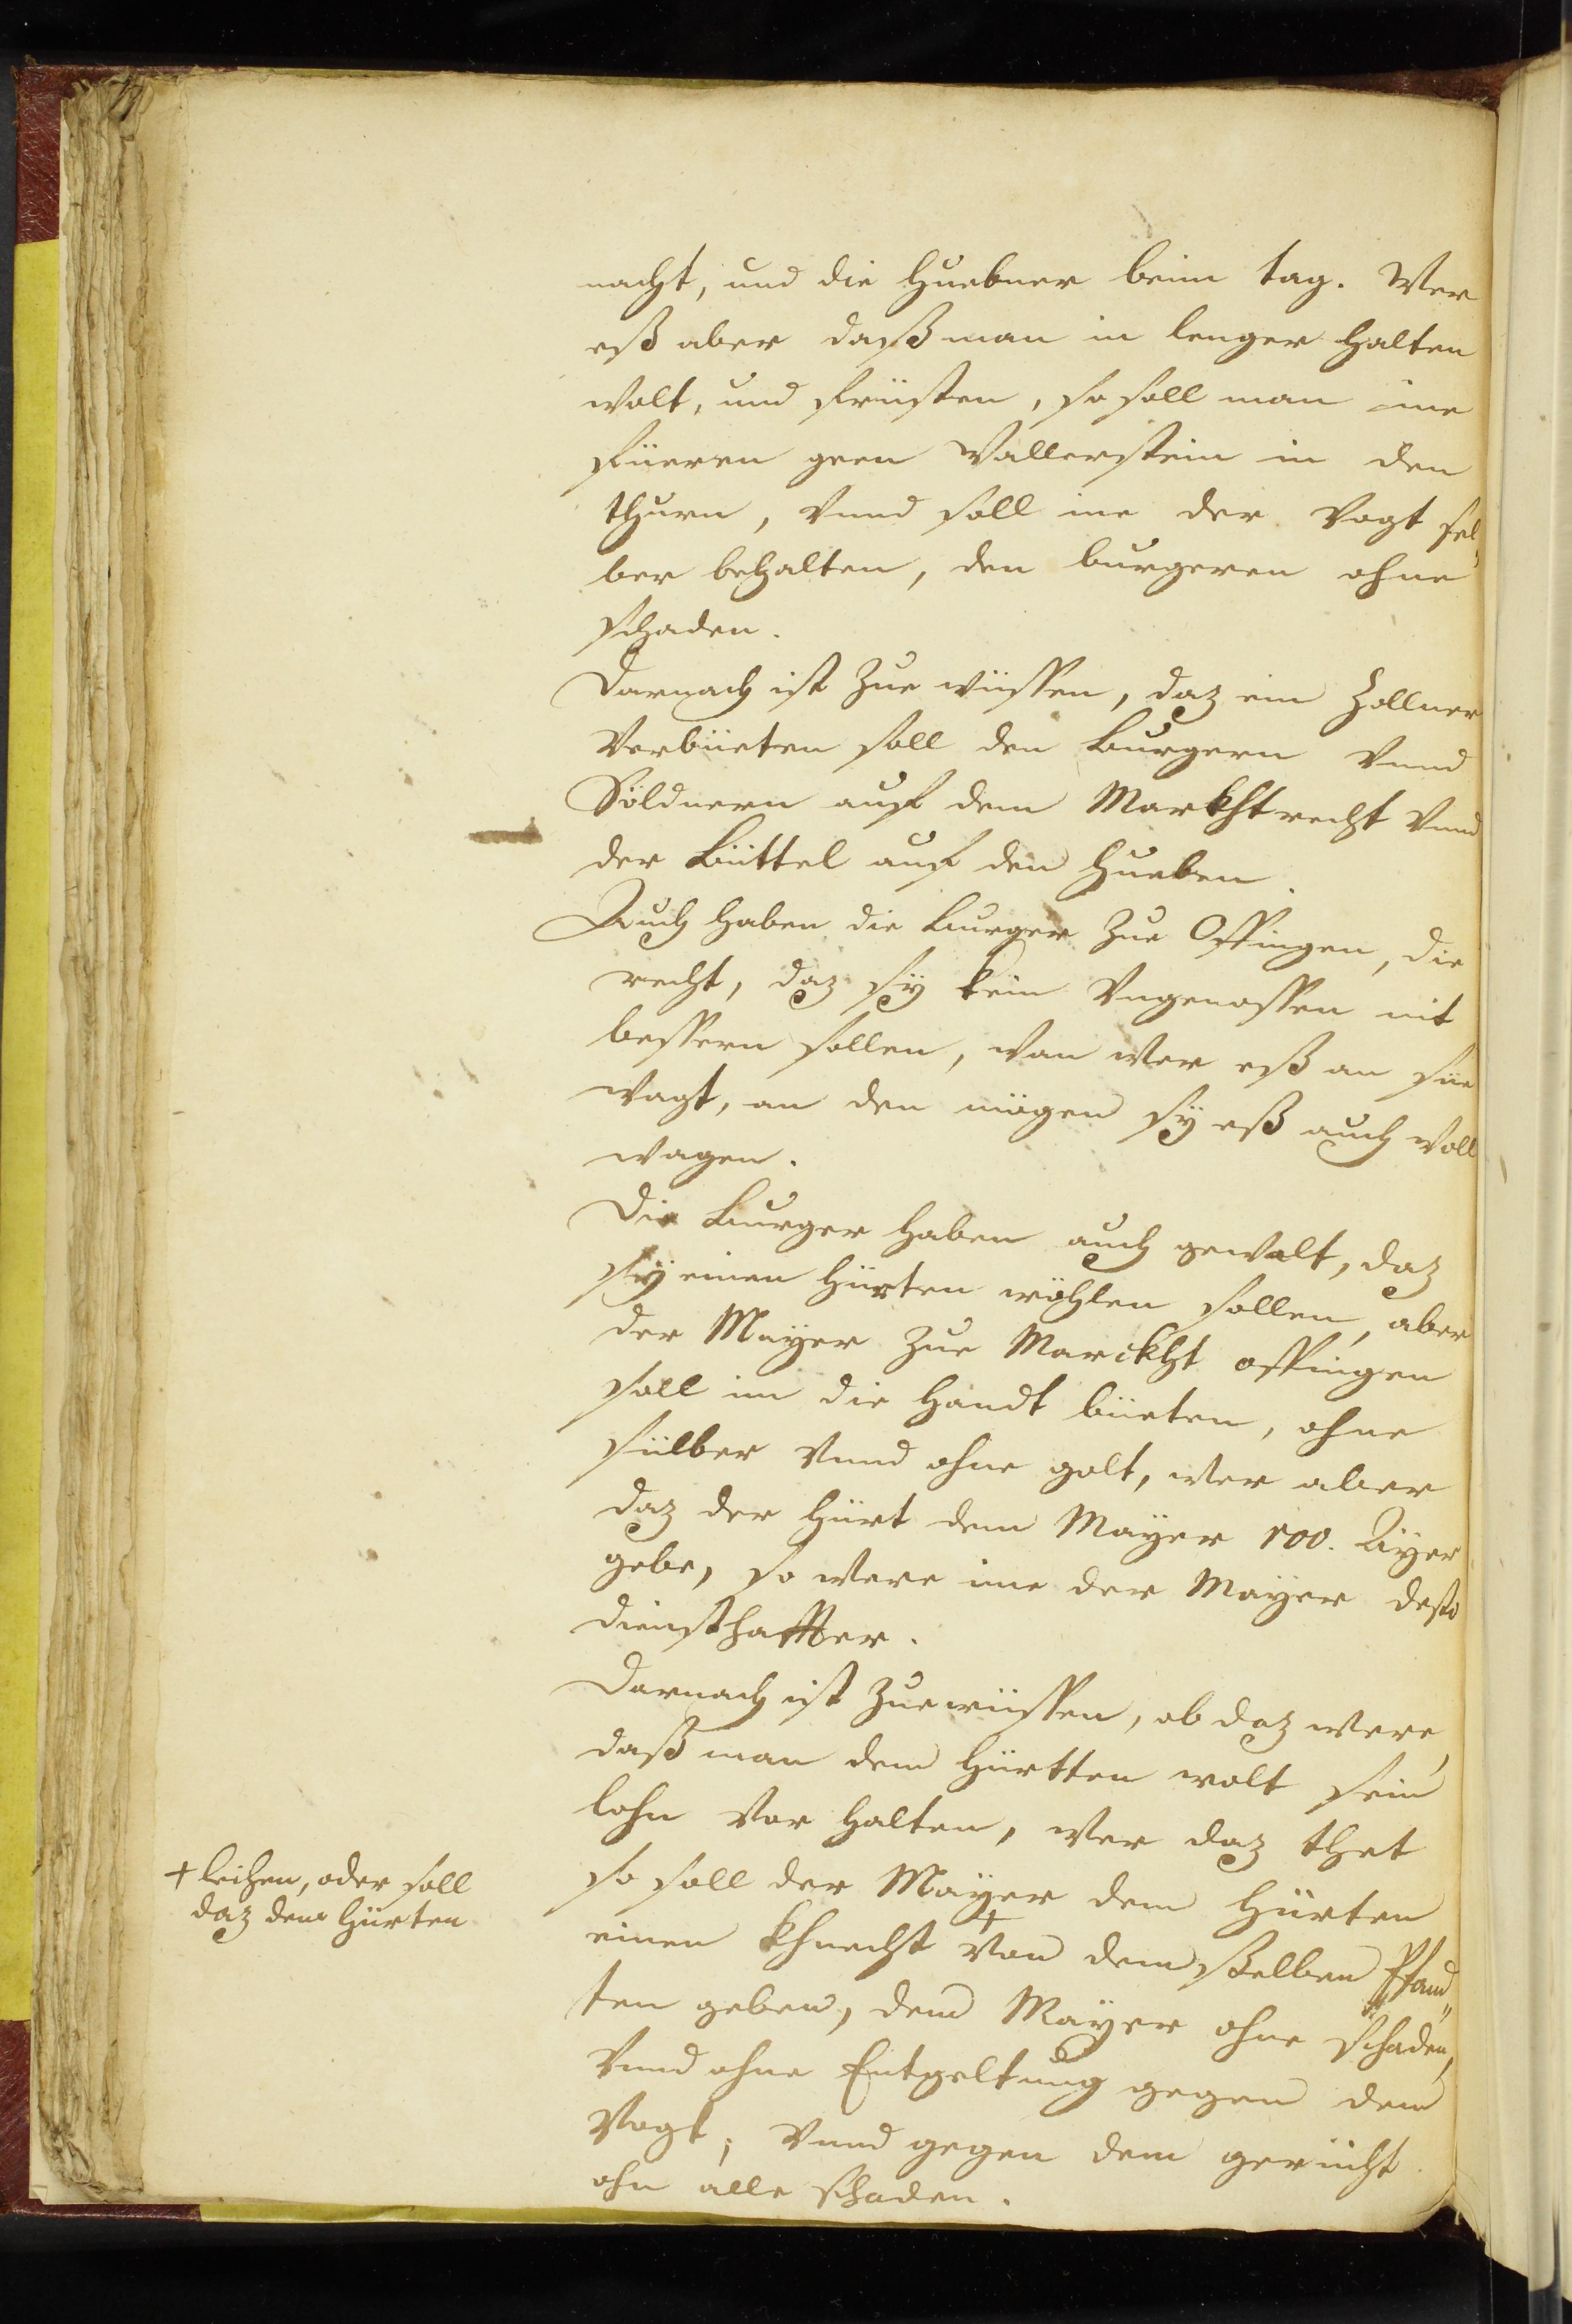 nacht, und die Huebner beim tag. Wer
eß aber daß man in lenger halten
wolt, und früsten, so soll man ine
füeren geen Wallerstein in den
thurn, Vnnd soll ine der Vogt sel,,
ber behalten, den burgeren ohne
schaden.
Darnach ist Zue wüssen, daz ein Zollner
Verbüeten soll den Burgern Vnnd
Söldnern auf dem Markhtrecht Vnnd
der Büttel auf den Hueben.
Auch haben die Burger Zue Offingen, die
recht, daz sÿ kein Vngenossen nit
bessern sollen, wan wer eß an sie
wagt, an den mögen sÿ eß auch woll
wagen.
Die Burger haben auch gewalt, daz
sÿ einen Hürten wöhlen sollen, aber
der Mayer Zue Marckht offingen
soll im die Handt büeten, ohne
silber Vnnd ohne golt, wer aber
daz der Hürt dem Mayer 100. Aÿer
gebe, so were ime der Mayer desto
diensthaffter.
Darnach ist Zuewüssen, ob daz were,
daß man dem Hürtten wolt sein
lohn Vor halten, wer daz thet
so soll der Mayer dem Hürten
einen Khnecht + Von dem sselben Pfand,,
ten geben, dem Mayer ohne schaden,
Vnnd ohne Entgeltung gegen dem
Vogt, Vnnd gegen dem gericht
ohn alle schaden.
+ leihen, oder soll
daz dem Hürten